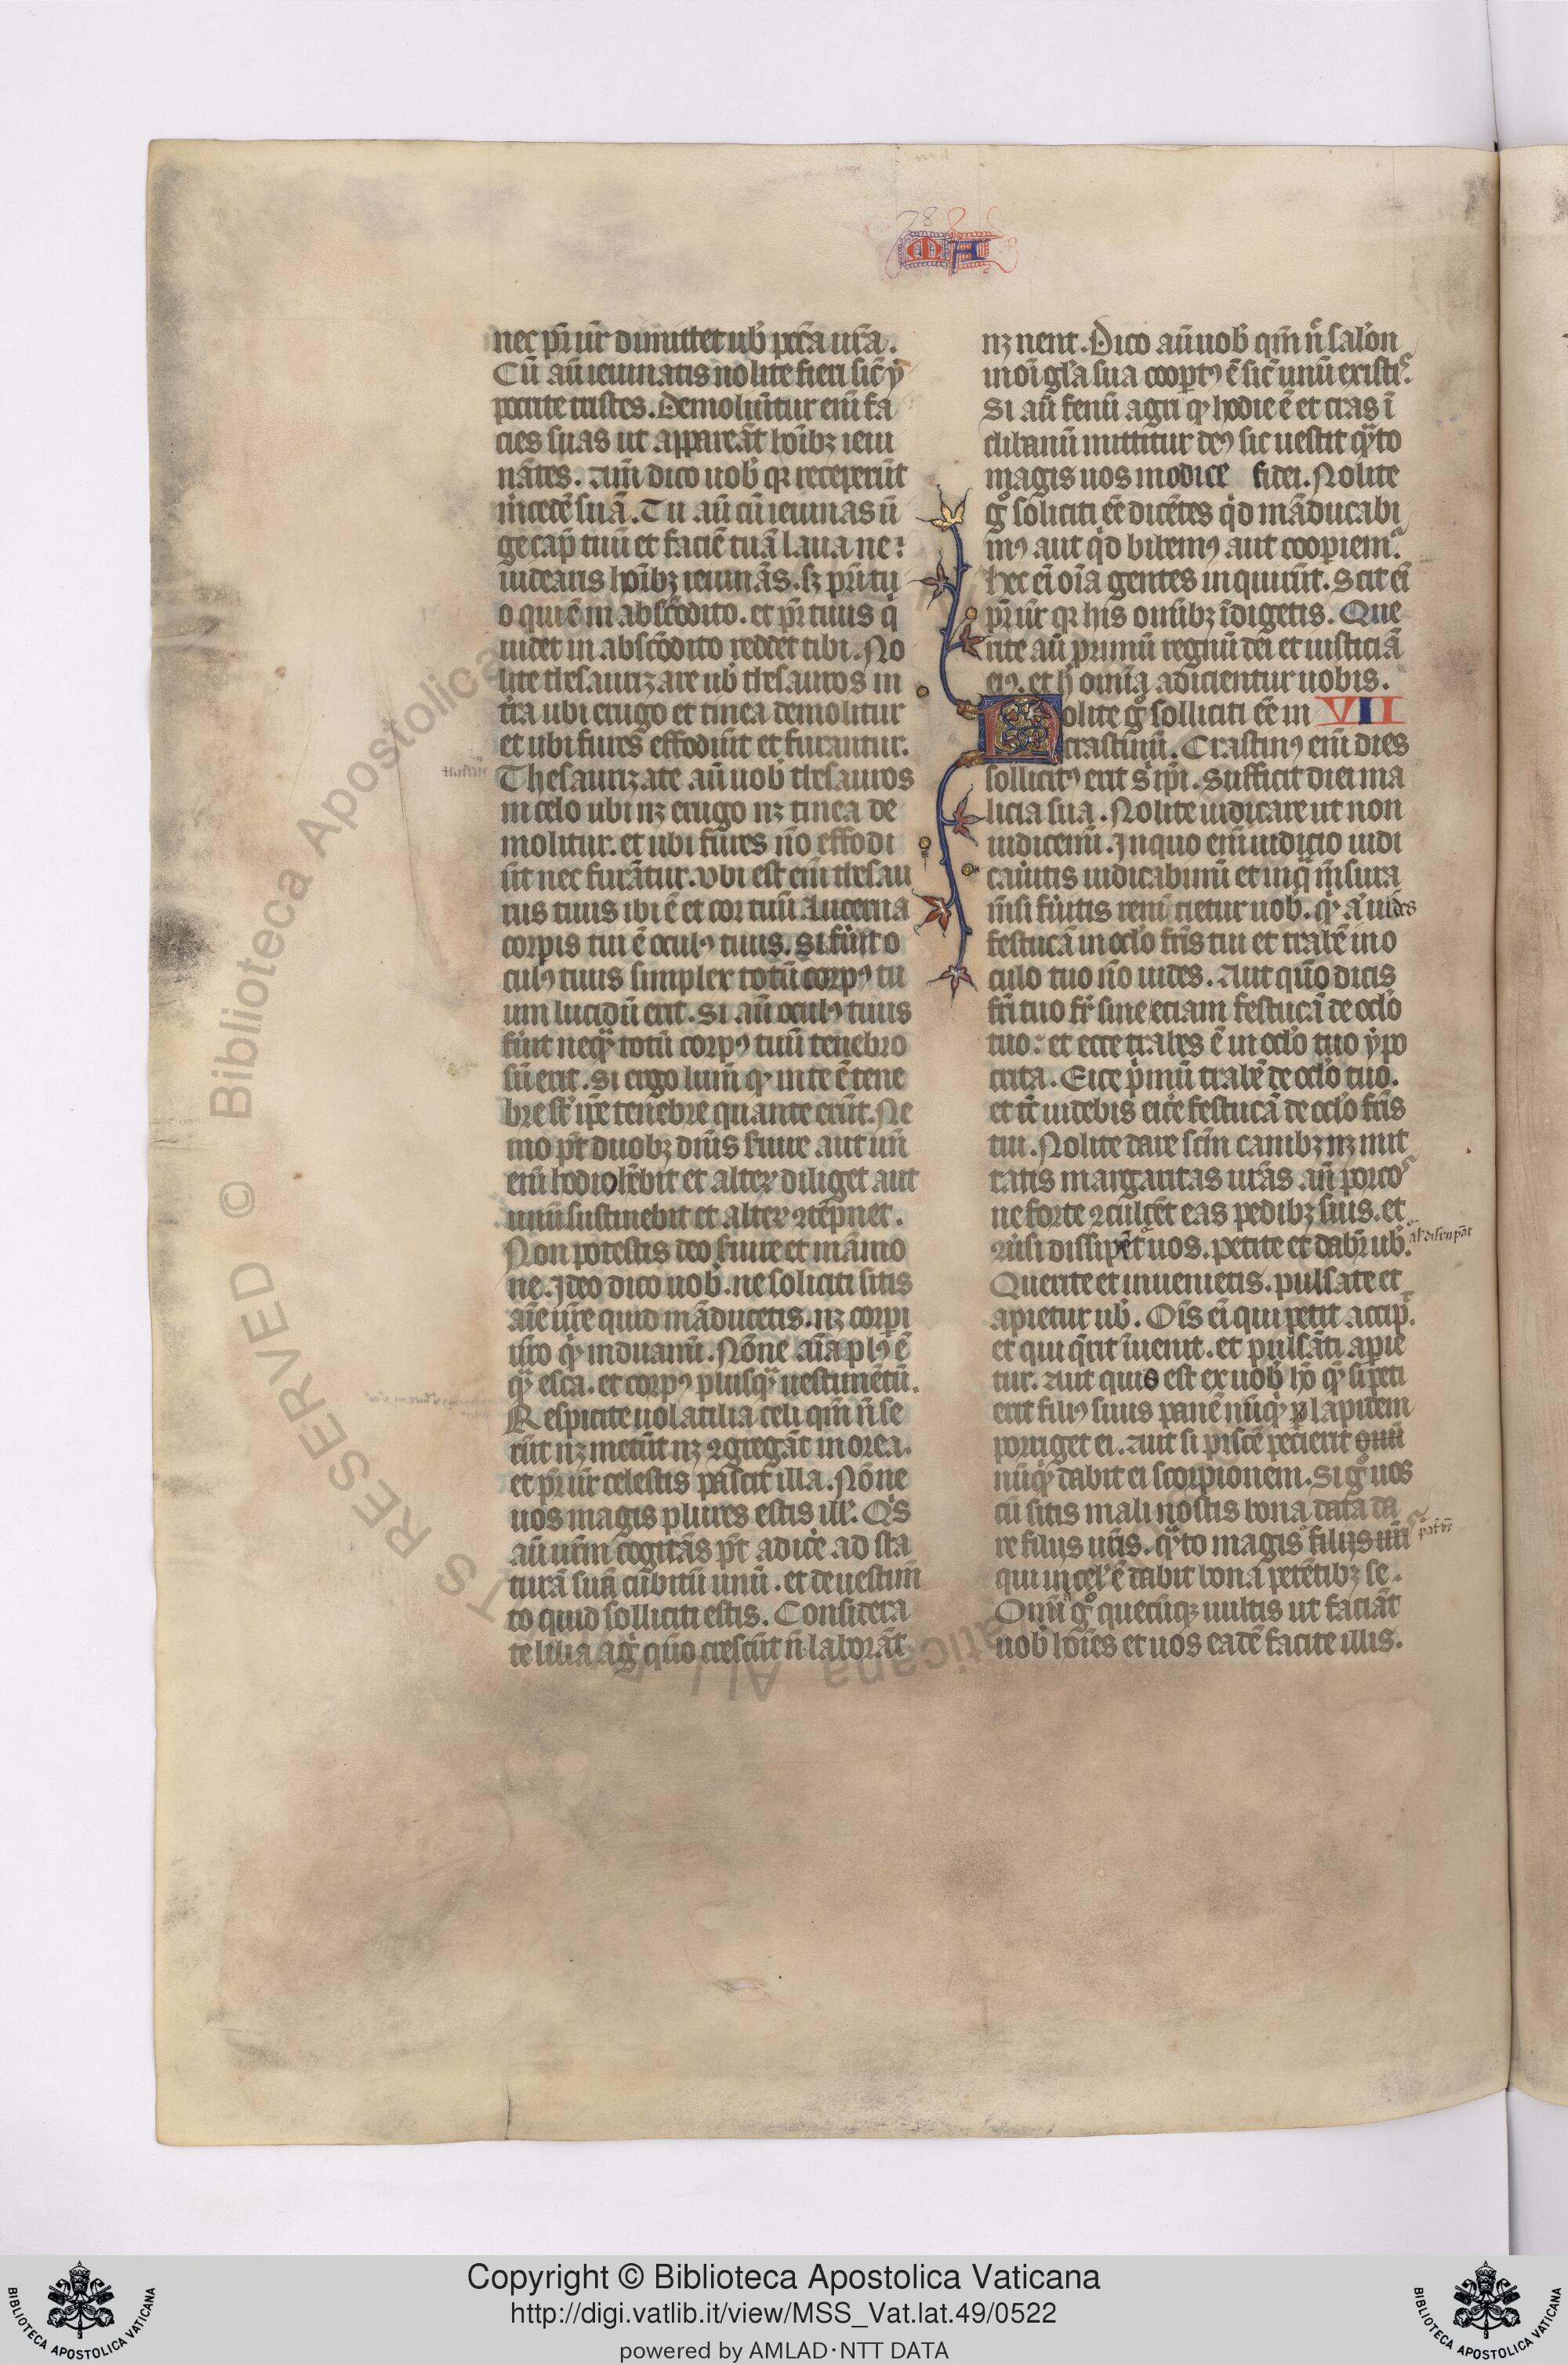 MA
nec pr̄ ur̄ dimittet ub̄ pctā urā.
Cū aū ieiunatis nolite fieri sic̄ ẏ
pocrite tristes. Demoliūtur enī fa
cies suas ut appareāt hoībꝫ ieiu
nātes. Am̄ dico uob̄ qꝛ receperūt
m̄cedē suā. Tu aū cū ieiunas ū
ge cap̄ tuū et faciē tuā laua ne:
uidearis hoībꝫ ieiunās. sꝫ pr̄i tu
o qui ē in abscōdito. et pr̄ tuus q̇
uidet in abscōdito reddet tibi. No
lite thesaurizare ub̄ thesauros in
tr̄a ubi erugo et tinea demolitur
et ubi fures effodiūt et furantur.
Thesaurizate aū uob̄ thesauros
in celo ubi nꝫ erugo nꝫ tinea de
molitur. et ubi fures nō effodi
ūt nec furātur. Ubi est enī thesau
rus tuus ibi ē et cor tuū. Lucerna
corpis tui ē oculꝰ tuus. si fūit o
culꝰ tuus simplex totū corpꝰ tu
um lucidū erit. Si aū oculꝰ tuus
fūit neqᷓ totū corpꝰ tuū tenebro
sū erit. Si ergo lum̄ qꝫ in te ē tene
bre st̄ ip̄e tenebre quante erūt. Ne
mo pt̄ duobꝫ dnīs ẜuire aut un̄
enī hodio hēbit et alterꝝ diliget aut
unū sustinebit et alterꝝ ꝯtēpnet.
Non potestis deo ẜuire et māmo
ne. Ideo dico uob̄. ne soliciti sitis
aīe ur̄e quid māducetis. nꝫ corpi
ur̄o qꝫ induamī. Nōne aīa plꝰ ē
qᷓ esca. et corpꝰ plusqᷓ uestimētū.
Respicite uolatilia celi qm̄ n̄ se
rūt nꝫ metūt nꝫ ꝯgregāt in orea.
et pr̄ ur̄ celestis pascit illa. Nōne
uos magis plures estis ill̄. Q̇s
aū ur̄m cogitās pt̄ adice ad sta
turā suā cubitū unū. et de uestim̄
to quid solliciti estis. Considera
te lilia agͥ quō crescūt n̄ laborāt
nꝫ nent. Dico aū uob̄ qm̄ n̄ salōn
in oī gl̄a sua coopt̄ꝰ ē sic̄ unū ex istiˢ.
Si aū fenū agri qꝫ hodie ē et cras ī
clibanū mittitur deꝰ sic uestit qᷓto
magis uos modice fidei. Nolite
gͦ solliciti ēē dicētes qͥd māducabi
mꝰ aut qͥd bibemꝰ aut coopiemˢ.
hec eī oīa gentes inquirūt. Scit eī
pr̄ ur̄ qꝛ his omībꝫ īdigetis. Que
rite aū primū regnū dei et iusticiā
eiꝰ. et h̄ omīa adicientur uobis.
Nolite gͦ solliciti ēē in VII
crastinū. Crastinꝰ enī dies
sollicitꝰ erit s̄ ip̄i. Sufficit diei ma
licia sua. Nolite iudicare ut non
iudicemī. In quo enī iudicio iudi
cauitis iudicabimī et in qᷓ m̄sura
m̄si fūitis remecietur uob̄. qꝫ aū uides
festucā in oclō fr̄is tui et trabē in o
culo tuo nō uides. Aut quō dicis
fr̄i tuo fr̄ sine eciam festucā de oclō
tuo: et ecce trabes ē in oclō tuo ẏpo
crita. Eice pͥmū trabē de oclō tuo.
et tc̄ uidebis eice festucā de oclō fr̄is
tui. Nolite dare scm̄ canibꝫ nꝫ mit
tatis margaritas ur̄as an̄ porcoˢ
ne forte ꝯculcēt eas pedibꝫ suis. et
ꝯūsi dissipēt uos. petite et dabit̄ ub̄.
al' disrūpāt
Querite et inuenietis. pulsate et
apietur ub̄. Oīs eī qui petit accip̄.
et qui q̄rit īuenit. et pulsāti apie
tur. Aut quis est ex uob̄ hō qᷓ si peti
erit filiꝰ suus panē nūqͥd lapidem
porriget ei. Aut si piscē pecierit
nūqͥd dabit ei scorpionem. Si gͦ uos
cū sitis mali nostis bona data da
re filiis ur̄is. qᷓto magis filiis ur̄i
pat' ur̄
qui in cel' ē dabit bona petētibꝫ se.
Omīa gͦ quecūqꝫ uultis ut faciāt
uob̄ hoīes et uos eadē facite illis.
© Biblioteca Apostolica Vaticana ALL RIGHTS RESERVED
Copyright © Biblioteca Apostolica Vaticana
http://digi.vatlib.it/view/MSS_Vat.lat.49/0522
powered by AMLAD·NTT DATA
BIBLIOTECA APOSTOLICA VATICANA
BIBLIOTECA APOSTOLICA VATICANA